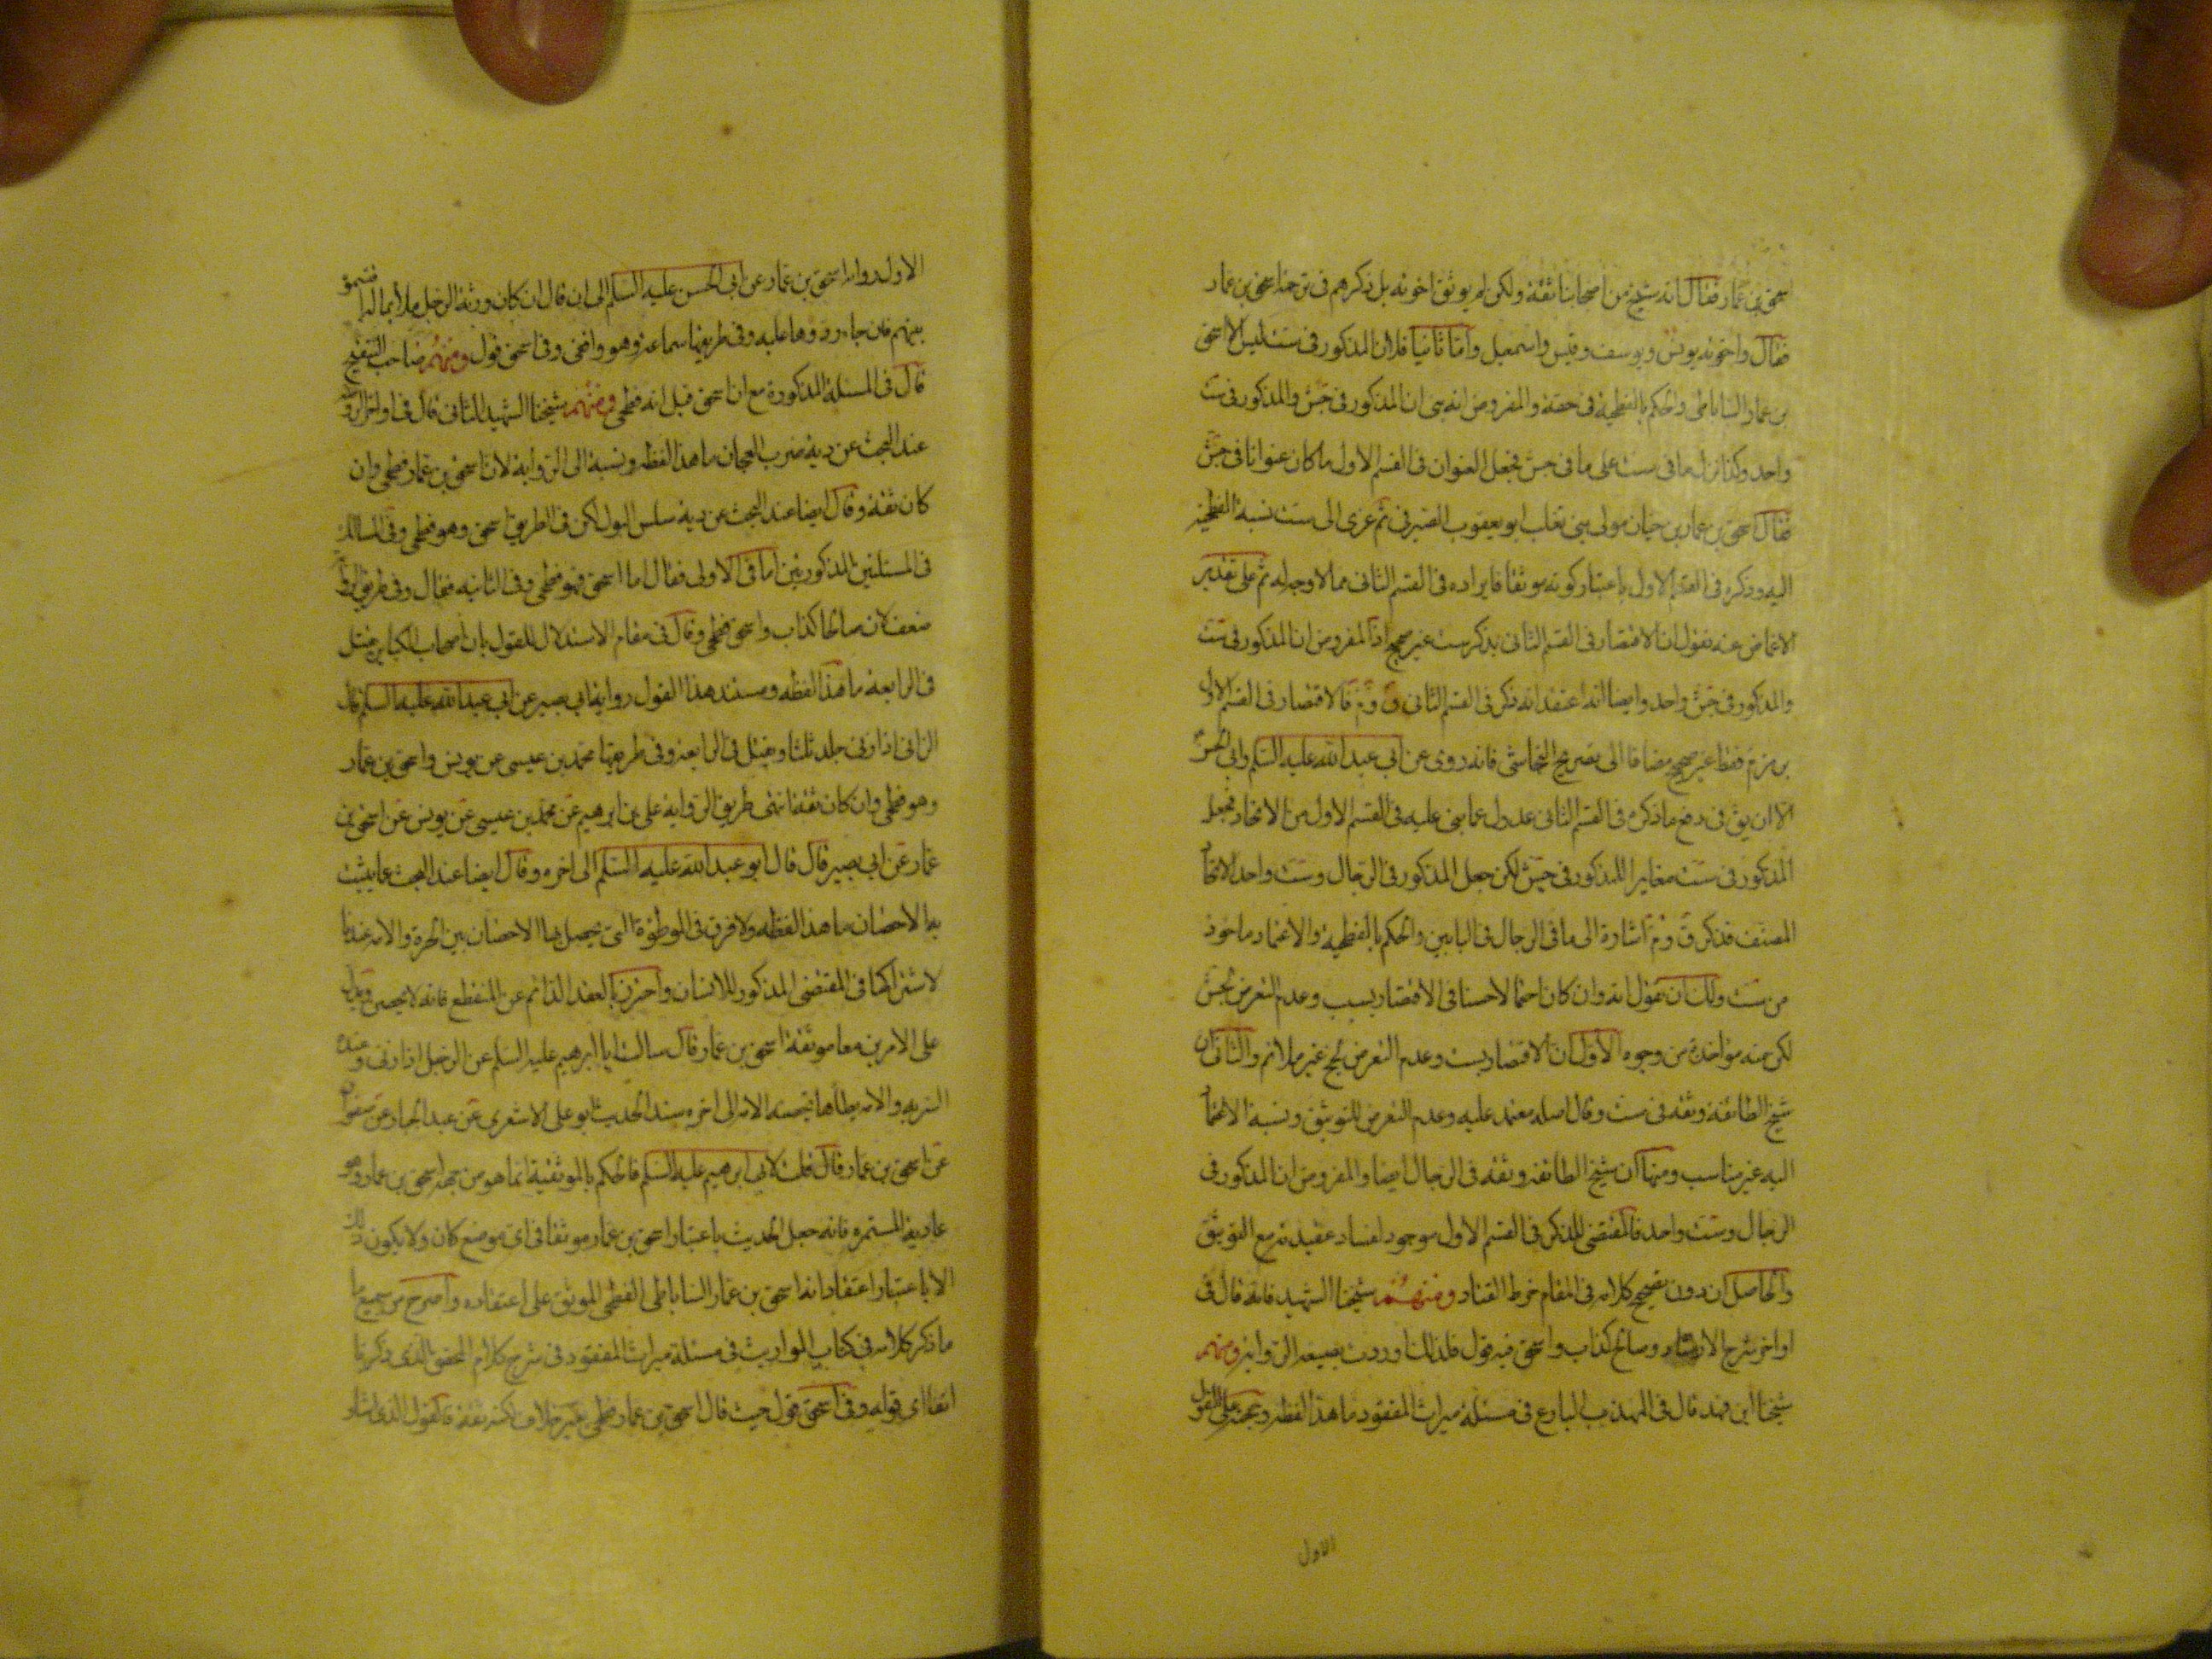 اسحق بن عمار فقال انه شيخ من اصحابنا ثقة ولكن لم يوثق اخوته بل ذكرهم فى ترجمة اسحق بن عمار
فقال واخوته يونس ويوسف وقيس واسمعيل واما ثانيا فلان المذكور فى ست ليس الا اسحق
بن عمار الساباطى والحكم بالفطحية فى حقه والمفروض انه يرى ان المذكور فى جش والمذكور فى ست
واحد وكذا نزل ما فى ست على ما فى جش فجعل العنوان فى القسم الاول ما كان عنوانا فى جش
فقال اسحق بن عمار بن حيان مولى بنى تغلب ابو يعقوب الصيرفى ثم عزى الى ست نسبة الفطحية
اليه وذكره فى القسم الاول باعتبار كونه موثقا فايراده فى القسم الثانى مما لا وجه له ثم على تقدير
الاغماض عنه نقول ان الاقتصار فى القسم الثانى بذكر ست غير صحيح اذ المفروض ان المذكور فى ست
والمذكور فى جش واحد وايضا انه اعتقد انه ذكر فى القسم الثانى ق و م فالاقتصار فى القسم الاول
برمز م فقط غير صحيح مضافا الى تصريح النجاشى فانه روى عن ابى عبد الله عليه السلم وابى الحسن
الا ان يق فى دفع ما ذكره فى القسم الثانى عدول عما بنى عليه فى القسم الاول من الاتحاد فجعل
المذكور فى ست مغايرا للمذكور فى جش لكن جعل المذكور فى الرجال وست واحد الاتحاد
المصنف فذكر ق و م اشارة الى ما فى الرجال فى البابين والحكم بالفطحية والاعتماد ماخوذ
من ست ولك ان تقول انه وان كان احتمالا حسنا فى الاقتصار بست وعدم التعرض لجش
لكن منه مؤاخذة من وجوه الاول ان الاقتصار بست وعدم التعرض لجخ غير ملائم والثانى ان
شيخ الطائفة وثقه فى ست وقال اصله معتمد عليه وعدم التعرض للتوثيق ونسبة الاعتماد
اليه غير مناسب ومنها ان شيخ الطائفة وثقه فى الرجال ايضا والمفروض ان المذكور فى
الرجال وست واحد فالمقتضى للذكر فى القسم الاول موجود لفساد عقيدته مع التوثيق
والحاصل ان دون تصحيح كلامه فى المقام خرط القتاد ومنهم شيخنا الشهيد فانه قال فى
اواخر شرح الارشاد وصالح كذاب واسحق فيه قول فلذلك اوردت بصيغة الرواية ومنهم
شيخنا ابن فهد قال فى المهذب البارع فى مسئلة ميراث المفقود ما هذا لفظه وحجته على القول
الاول
الاول رواه اسحق بن عمار عن ابى الحسن عليه السلم الى ان قال ان كان ورثة الرجل ملأ بماله اقتسموه
بينهم فان جاء ردوها عليه وفى طريقها سماعة وهو واقفى وفى اسحق قول ومنهم صاحب التنقيح
قال فى المسئلة المذكورة مع ان اسحق قيل انه فطحى ومنهم شيخنا الشهيد الثانى قال فى اواخر الروضة
عند البحث عن دية ضرب العجان ما هذا لفظه ونسبة الى الرواية لان اسحق بن عمار فطحى وان
كان ثقة وقال ايضا عند البحث عن دية سلس البول لكن فى الطريق اسحق وهو فطحى وفى المسالك
فى المسئلتين المذكورتين اما فى الاولى فقال اما اسحق فهو فطحى وفى الثانيه فقال وفى طريق الرواية
ضعف لان صالحا كذاب واسحق فطحى وقال فى مقام الاستدلال للقول بان اصحاب الكبائر يقتل
فى الرابعة ما هذا لفظه ومستند هذا القول رواية ابى بصير عن ابى عبد الله عليه السلم قال
الزانى اذا زنى جلد ثلثا ويقتل فى الرابعة وفى طريقها محمد بن عيسى عن يونس واسحق بن عمار
وهو فطحى وان كان ثقة انتهى طريق الرواية على بن ابرهيم عن محمد بن عيسى عن يونس عن اسحق بن
عمار عن ابى بصير قال قال ابو عبد الله عليه السلم الى اخره وقال ايضا عند البحث عما يثبت
به الاحصان ما هذا لفظه ولا فرق فى الموطوءة التى يحصل بها الاحصان بين الحرة والامة عندنا
لاشتراكهما فى المقتضى المذكور للانسان واحترز بالعقد الدائم عن المنقطع فانه لا يحصن ويدل
على الامرين معا موثقة اسحق بن عمار قال سالت ابا ابرهيم عليه السلم عن الرجل اذا زنى وعنده
السرية والامة يطأها تحصنه الامة الى اخره سند الحديث ابو على الاشعرى عن عبد الجبار عن صفوان
عن اسحق بن عمار قال قلت لابى ابرهيم عليه السلم فالحكم بالموثقية انما هو من جهة اسحق بن عمار وهو
عادته المستمرة فانه جعل الحديث باعتبار اسحق بن عمار موثقا فى اى موضع كان ولا يكون ذلك
الا باعتبار اعتقاد انه اسحق بن عمار الساباطى الفطحى الموثق على اعتقاده واصرح من جميع ما
ما ذكر كلامه فى كتاب المواريث فى مسئلة ميراث المفقود فى شرح كلام المحقق الذى ذكرنا
انفا اى قوله وفى اسحق قول حيث قال اسحق بن عمار فطحى غير خلاف لكنه ثقة فالقول الذى اشار